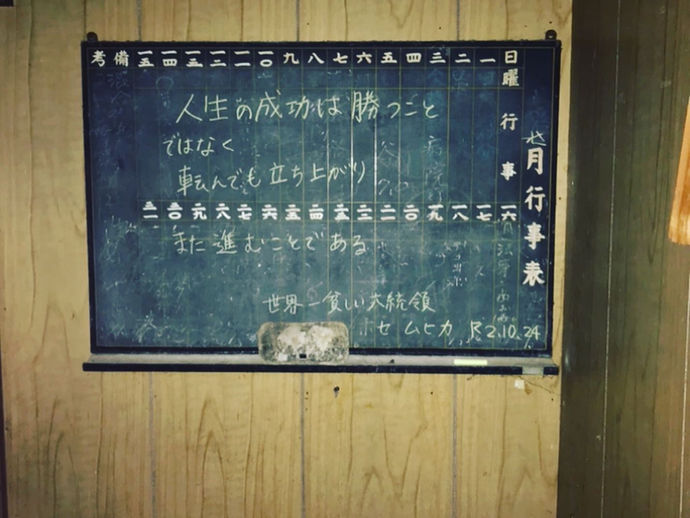 備考 一五 一四 一三 一二 一一 一〇 九 八 七 六 五 四 三 二 一 日曜
行事
月行事表
人生の成功は勝つこと
ではなく
転んでも立ち上がり
三一 三〇 二九 二八 二七 二六 二五 二四 二三 二二 二一 二〇 一九 一八 一七 一六
また進むことである
世界一貧しい大統領
ホセ ムヒカ R2.10.24